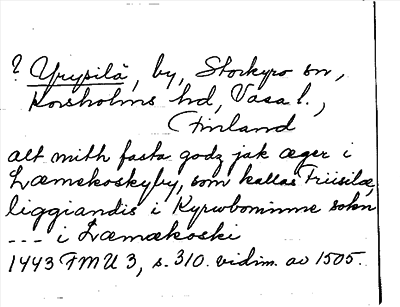 ? Yrypilä, by, Storkyro sn,
Korsholms hd, Vasa l.,
(Finland
alt mith fasta godz jak æger i
Læmækoskyby, som kallas Friisilæ,
liggiandis i Kyrwboninme sokn
--- i Læmækoski
1443 FMU 3, s. 310. vidim. av 1505.